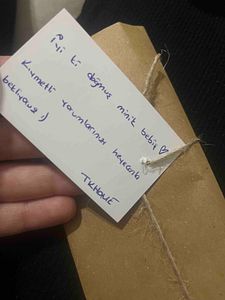 İyi ki doğmuş minik bebiş ♡
Kıymetli yorumlarınızı heyecanla
bekliyoruz :)
TKHOME